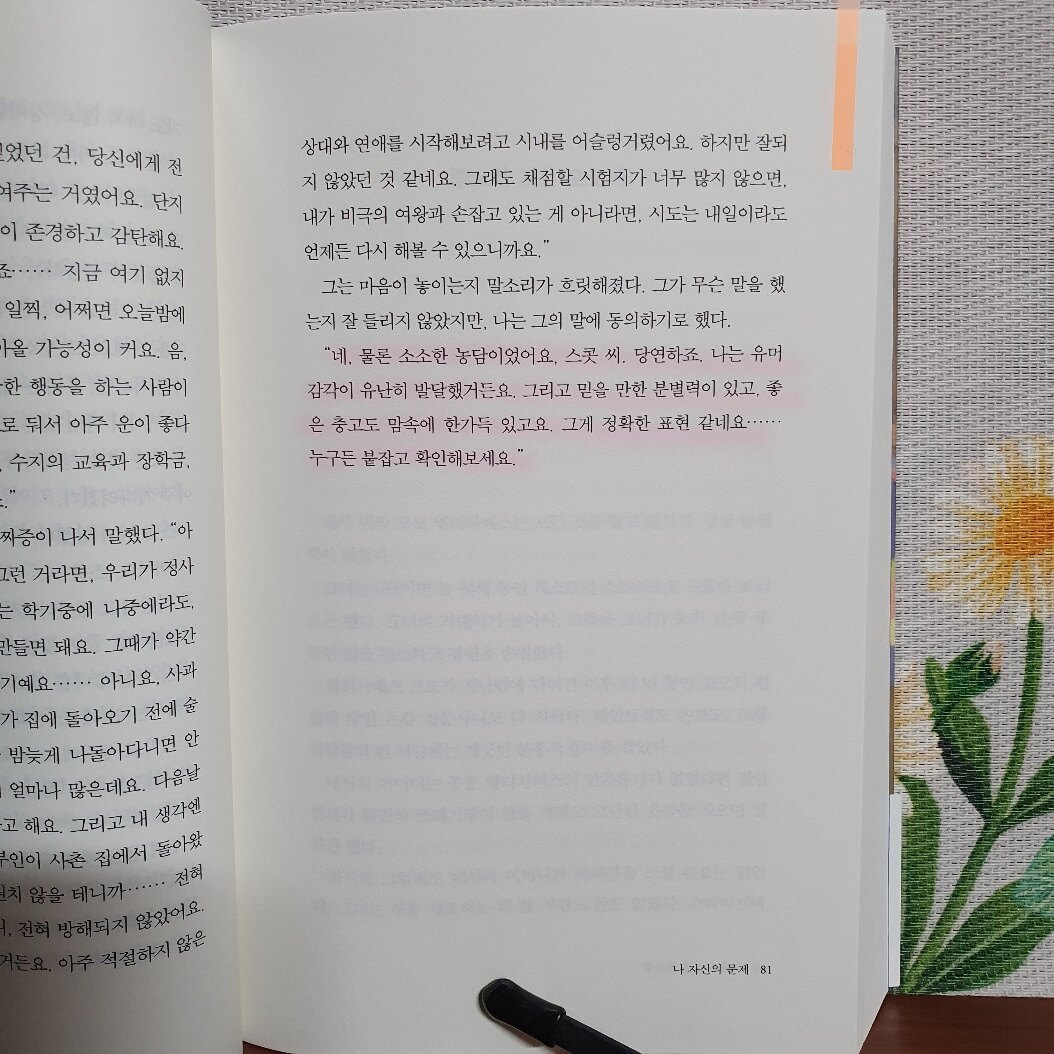 었던 건, 당신에게 전
여주는 거였어요. 단지
이 존경하고 감탄해요.
죠…… 지금 여기 없지
일찍, 어쩌면 오늘밤에
아올 가능성이 커요. 음,
한 행동을 하는 사람이
로 둬서 아주 운이 좋다
수지의 교육과 장학금,
”
짜증이 나서 말했다. “아
그런 거라면, 우리가 정사
는 학기중에 나중에라도,
만들면 돼요. 그때가 약간
기예요…… 아니요, 사과
가 집에 돌아오기 전에 술
밤늦게 나돌아다니면 안
얼마나 많은데요. 다음날
고 해요. 그리고 내 생각엔
부인이 사촌 집에서 돌아왔
치 않을 테니까…… 전혀
전혀 방해되지 않았어요.
거든요. 아주 적절하지 않은
상대와 연애를 시작해보려고 시내를 어슬렁거렸어요. 하지만 잘되
지 않았던 것 같네요. 그래도 채점할 시험지가 너무 많지 않으면,
내가 비극의 여왕과 손잡고 있는 게 아니라면, 시도는 내일이라도
언제든 다시 해볼 수 있으니까요.”
그는 마음이 놓이는지 말소리가 흐릿해졌다. 그가 무슨 말을 했
는지 잘 들리지 않았지만, 나는 그의 말에 동의하기로 했다.
“네, 물론 소소한 농담이었어요, 스콧 씨. 당연하죠. 나는 유머
감각이 유난히 발달했거든요. 그리고 믿을 만한 분별력이 있고, 좋
은 충고도 맘속에 한가득 있고요. 그게 정확한 표현 같네요……
누구든 붙잡고 확인해보세요.”
나 자신의 문제 81